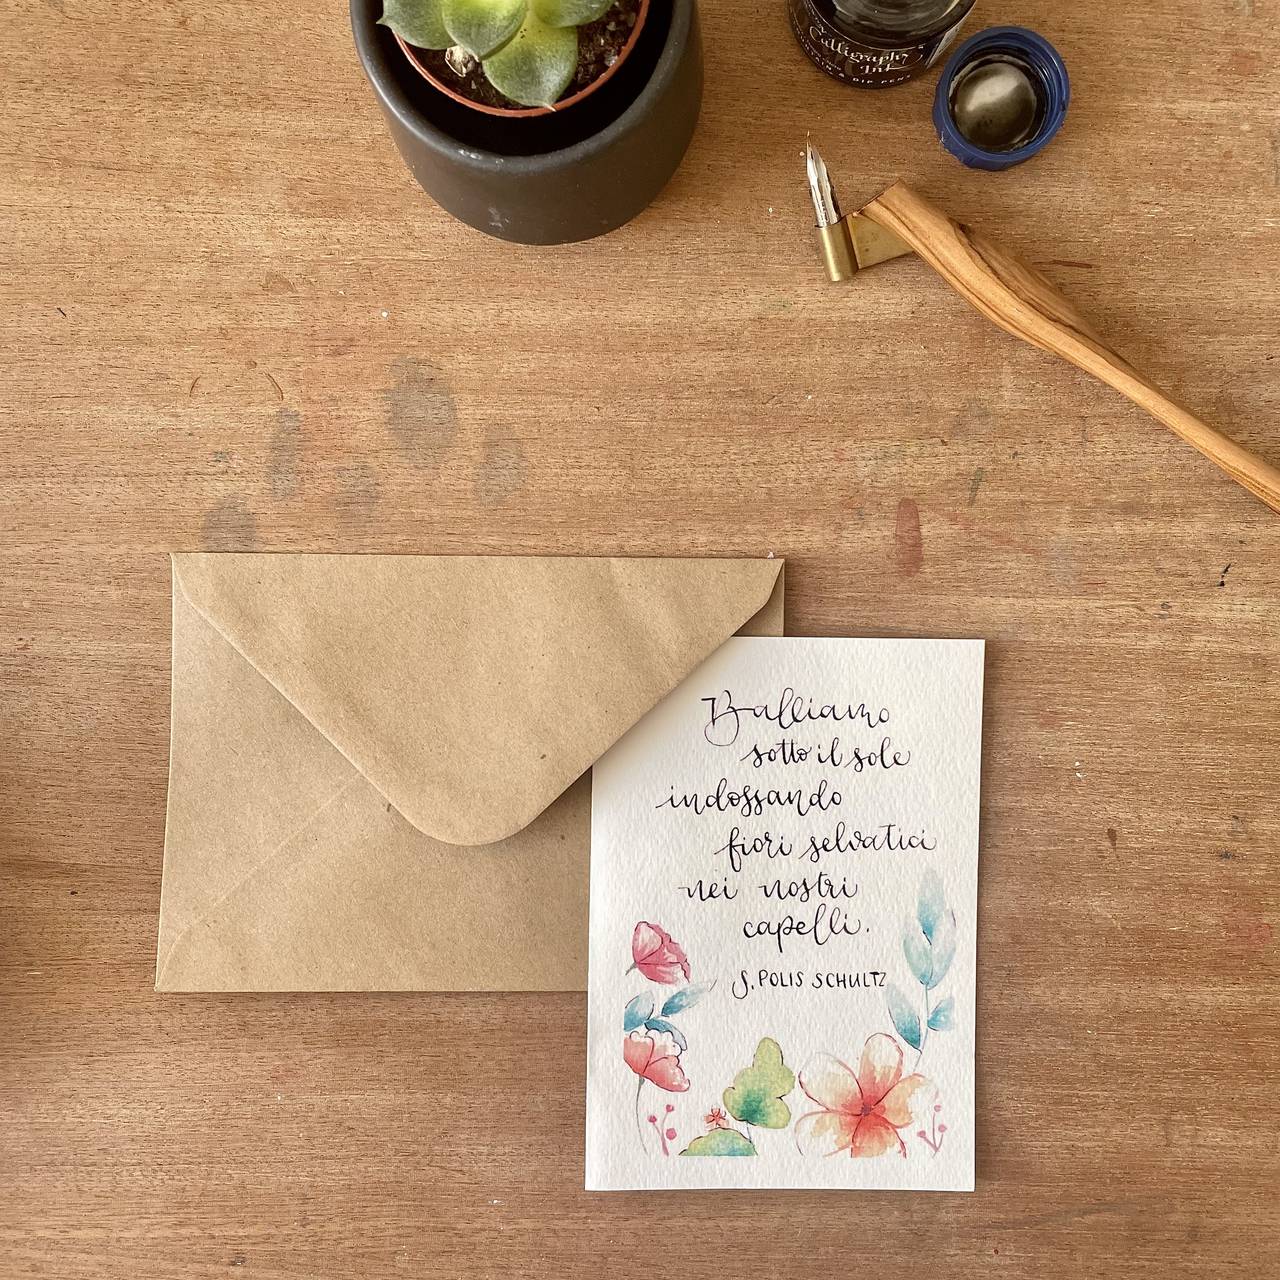 Calligraphy
Ink
& DIP PENS
Balliamo
sotto il sole
indossando
fiori selvatici
nei nostri
capelli.
S. POLIS SCHULTZ